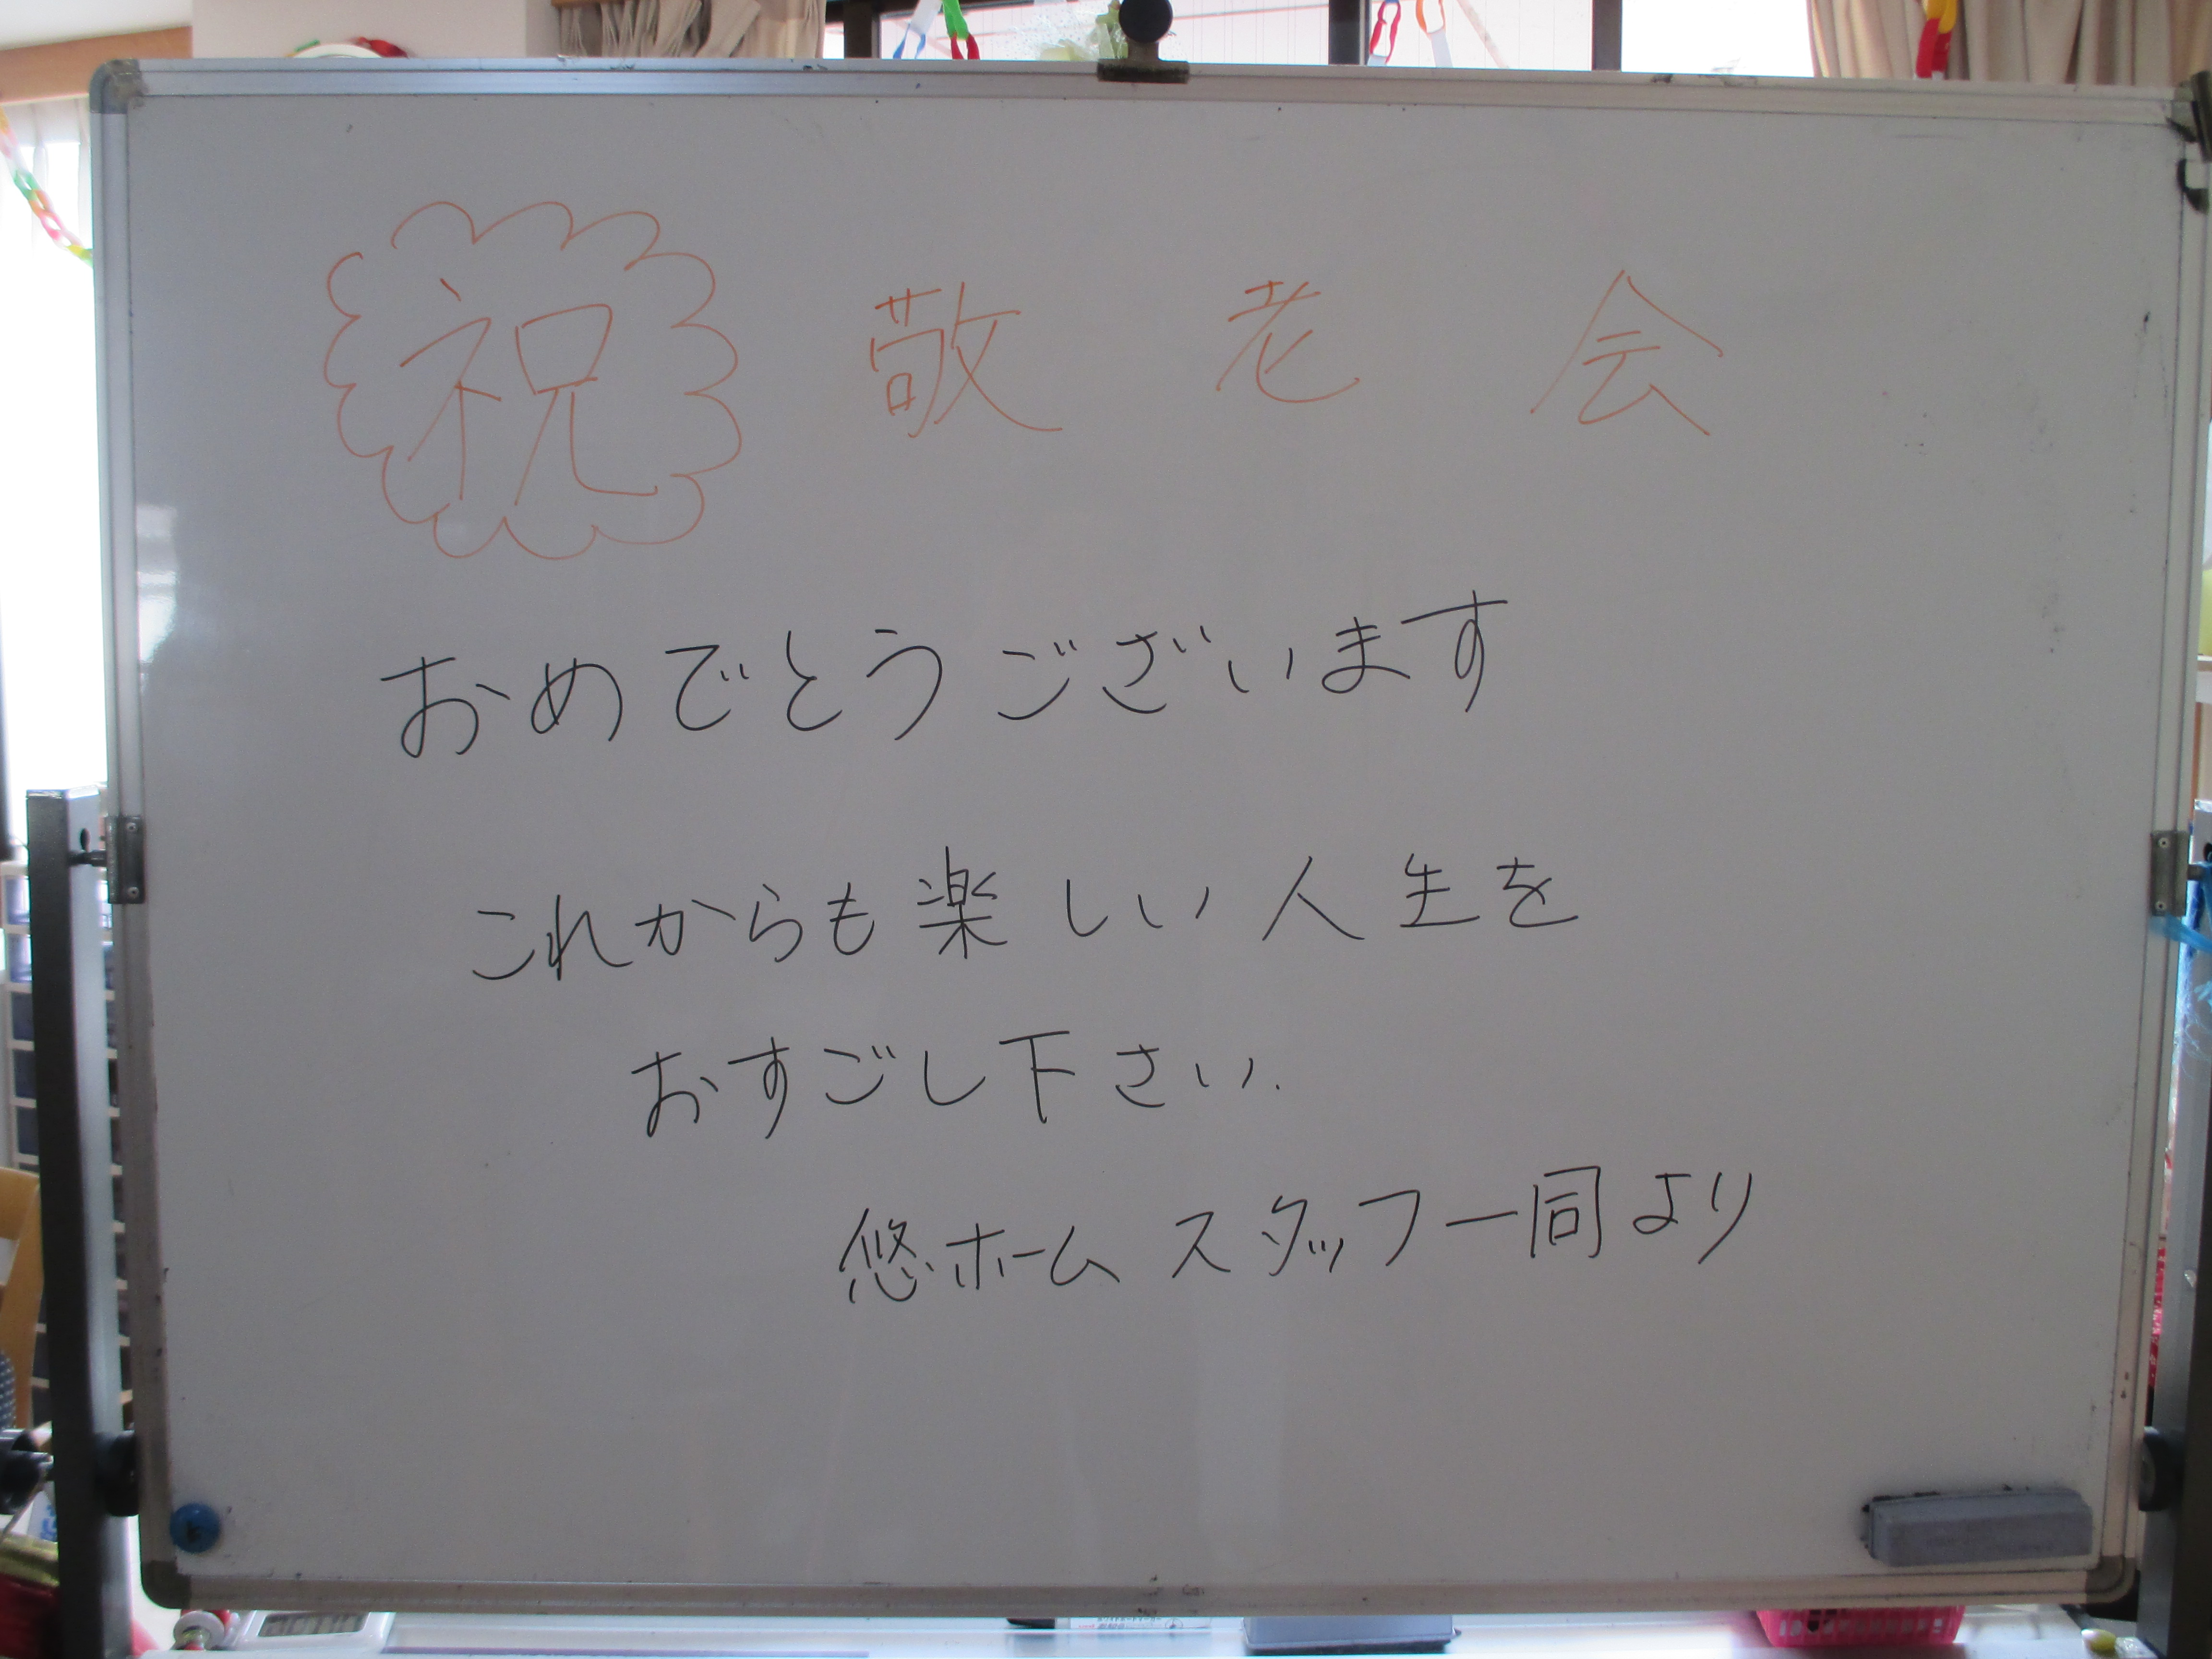 祝 敬老会
おめでとうございます
これからも楽しい人生を
おすごし下さい.
悠ホーム スタッフ一同より